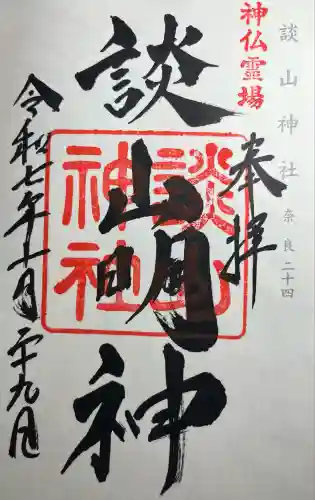 談山神社 奈良二十四
神仏霊場
奉拝
談山明神
談山神社
令和七年十一月二十九日